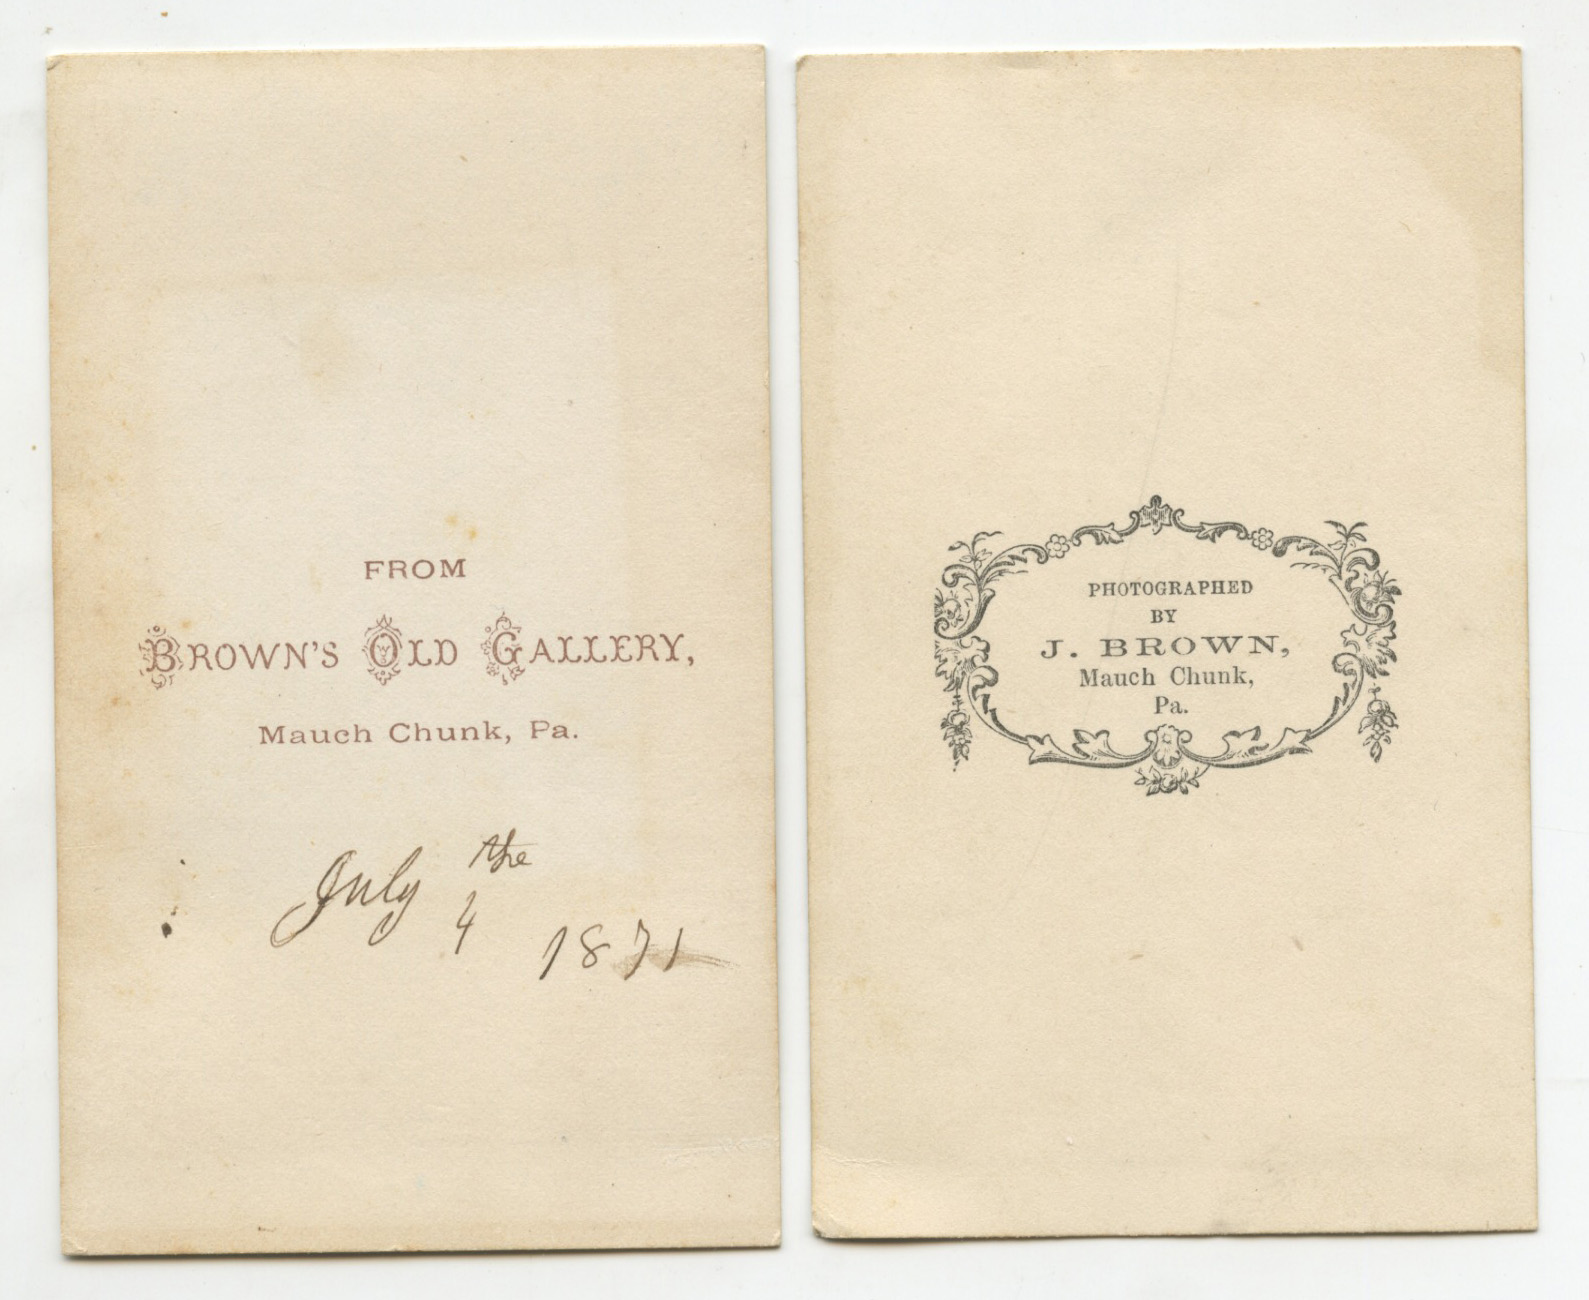 FROM
BROWN'S OLD GALLERY,
Mauch Chunk, Pa.
July the
4
1871
PHOTOGRAPHED
BY
J. BROWN,
Mauch Chunk,
Pa.